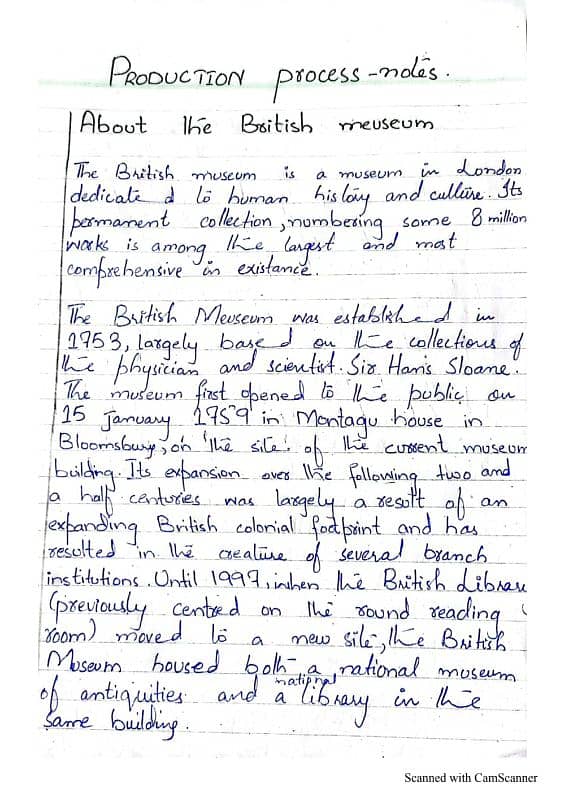 PRODUCTION process-notes.
About the British meuseum
The British museum is a museum in London
dedicate d to human history and culture. Its
permament collection, numbering some 8 million
works is among the largest and most
comprehensive in existance.
The British Meuseum was established in
1753, largely based on the collections of
the physician and scientist. Sir Hans Sloane.
The museum first opened to the public on
15 January 1759 in Montagu house in
Bloomsbury, on the site. of the current museum
building. Its expansion over the following two and
a half centuries was largely a result of an
expanding British colonial footprint and has
resulted in the creature of several branch
institutions. Until 1997, when the British Librar
(previously centred on the round reading
room) moved to a new site, the British
Museum housed both a national museum
of antiquities and a national library in the
same building.
Scanned with CamScanner